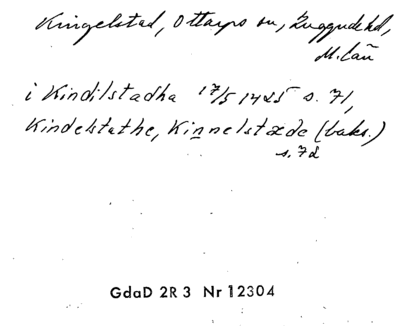 Kingelstad, Ottarps sn, Luggude hd,
M.län
i Kindilstadha 17/5 1425 s. 71,
Kindelstathe, Kinnelstæde (baks.)
s. 72
GdaD 2R3 Nr 12304